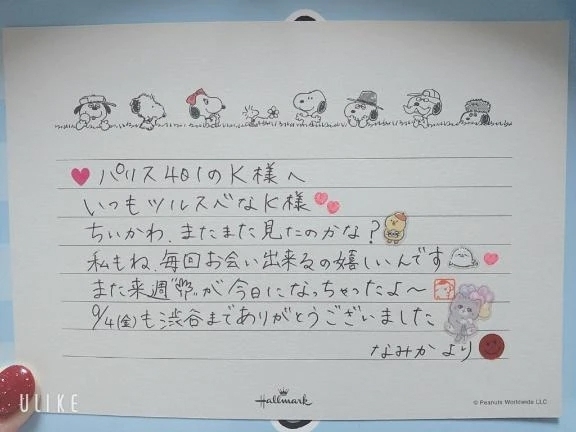 パリス401のK様へ
いつもツルスベなK様
ちいかわ、またまた見たのかな?
私もね、毎回お会い出来るの嬉しいんです
また来週 が今日になっちゃったよ〜
9/4(金)も渋谷までありがとうございました
なみかより
Hallmark
© Peanuts Worldwide LLC
ULIKE